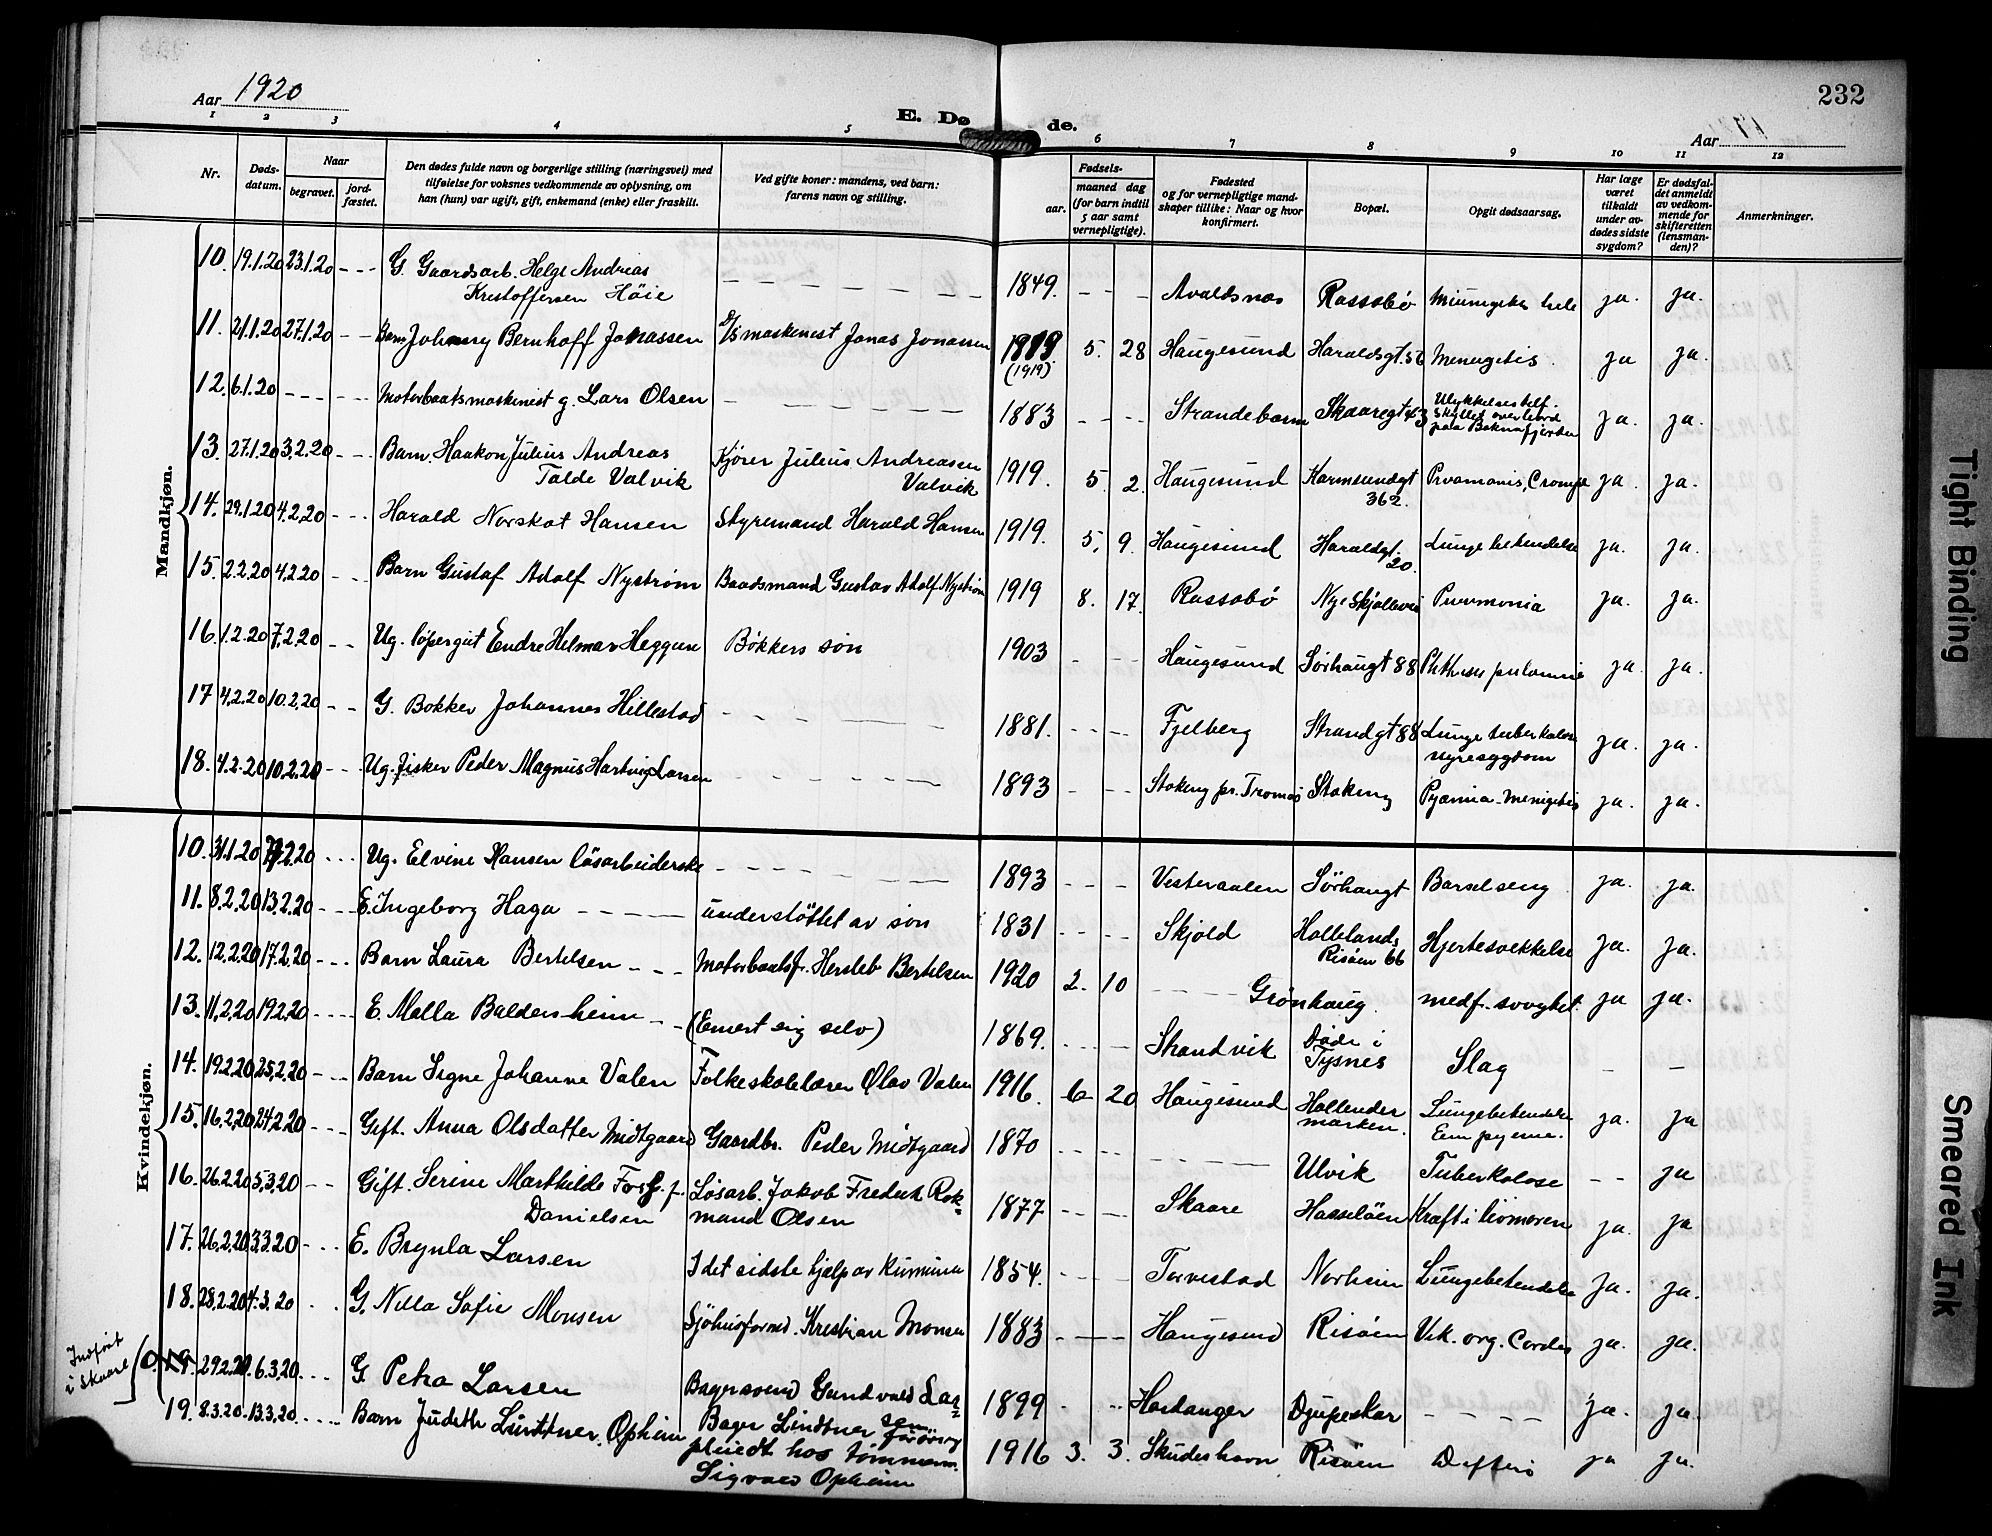 232
Aar 1920
E. Døde.
Aar
1 2 3 4 5 6 7 8 9 10 11 12
Nr.
Døds-
datum.
Naar
begravet.
jord-
fæstet.
Den dødes fulde navn og borgerlige stilling (næringsvei) med
tilføielse for voksnes vedkommende av oplysning, om
han (hun) var ugift, gift, enkemand (enke) eller fraskilt.
Ved gifte koner: mandens, ved barn:
farens navn og stilling.
Fødsels-
aar.
maaned dag
(for barn indtil
5 aar samt
vernepligtige).
Fødested
og for vernepligtige mand-
skaper tillike: Naar og hvor
konfirmert.
Bopæl.
Opgit dødsaarsag.
Har læge
været
tilkaldt
under av-
dødes sidste
sygdom?
Er dødsfal-
det anmeldt
av vedkom-
mende for
skifteretten
(lensman-
den)?
Anmerkninger.
Mandkjøn.
10. 19.1.20 23.1.20 G. Gaardsarb. Helge Andreas
Kristoffersen Höie 1849. Avaldsnes Rossabø ja. ja.
11. 21.1.20 27.1.20 Barn Johnny Bernhoff Jonassen D/s maskinest Jonas Jonassen 1919 (1919) 5. 28 Haugesund Haraldsgt. 56 Meningitis. ja ja.
12. 6.1.20 Motorbaatsmaskinist g. Lars Olsen 1883 Strandebarm Skaaregt 43 Ulykkelsestilf.
skyllet overbord
paa Boknafjorden ja. ja.
13. 27.1.20 3.2.20 Barn. Haakon Julius Andreas
Talde Valvik Kjører Julius Andreasen
Valvik 1919. 5. 2. Haugesund Karmsundgt
362. ja. ja.
14. 29.1.20 4.2.20 Harald Norskat Hansen Styremand Harald Hansen 1919. 5. 9. Haugesund Haraldgt.
20. Lunge betendelse ja. ja.
15. 2.2.20 4.2.20 Barn Gustaf Adolf Nystrøm Baadsmand Gustav Adolf Nystrøm 1919 8. 17. Rossabö Nye Skjoldavei Pneumonia ja. ja.
16. 1.2.20 7.2.20 Ug. löpergut Endre Helmar Heggun Bökkers sön 1903 Haugesund Sörhaugt 88 ja. ja.
17 4.2.20 10.2.20 G. Bökker Johannes Hillestad 1881. Fjelberg Strandgt 88 Lunge tuberkolose
nyresygdom ja. ja.
18. 4.2.20 10.2.20 Ug. fisker Peder Magnus Hartvig Larsen 1893 Stokeng pr. Tromsö Stokeng Pyæmia-menigetis ja. ja.
Kvindekjøn.
10. 31.1.20 7.2.20 Ug. Elvine Hansen lösarbeiderske 1893 Vesteraalen Sörhaugt Barselseng ja. ja.
11. 8.2.20 13.2.20 E. Ingeborg Haga understöttet av sön 1831 Skjold Hollelands
Risöen 66 Hjertesvekkelse ja. ja.
12. 12.2.20 17.2.20 Barn Laura Bertelsen Motorbaatsf. Hersleb Bertelsen 1920 2. 10 Grönhaug. medf. svaghet. ja ja.
13. 11.2.20 19.2.20 E. Malla Baldersheim (Ernert sig selv) 1869. Strandvik Döde i
Tysnes Slag
14. 19.2.20 25.2.20 Barn Signe Johanne Valen Folkeskolelærer Olav Valen 1916. 6 20 Haugesund Hollender
marken. Lungebetendelse
Empyeme. ja. ja
15. 16.2.20 24.2.20 Gift. Anna Olsdatter Midtgaard Gaardbr. Peder Midtgaard 1870 Ulvik Tuberkolose ja
16. 26.2.20 5.3.20 Gift. Serine Marthilde f.
Danielsen Løsarb. Jakob Fredrik Rok-
mand Olsen 1877 Skaare Hasselöen Kræft i livmoren ja. ja
17. 26.2.20 3.3.20 E. Brynla Larsen I det sidste hjelp av Kommunen 1854. Torvestad Norheim Lungebetendelse ja. ja.
18. 28.2.20 4.3.20 G. Nilla Sofie Monsen Sjöhusformd. Kristian Monsen 1883 Haugesund Risöen Vit. org. Cordis ja. ja.
Indført
i Skaare
0. 19. 29.2.20. 6.3.20. G. Petra Larsen Bagersvend Gundvald Lar- 1899 Hardanger Djupeskar ja. ja.
19. 8.3.20. 13.3.20. Barn Judith Lindtner. Opheim Bager Lindtner sen
forövrig
pleiedt hos tömmerm.
Sigvald Opheim 1916 3. 3. Skudeshavn Risöen Difteri ja ja.
Tight Binding
Smeared Ink